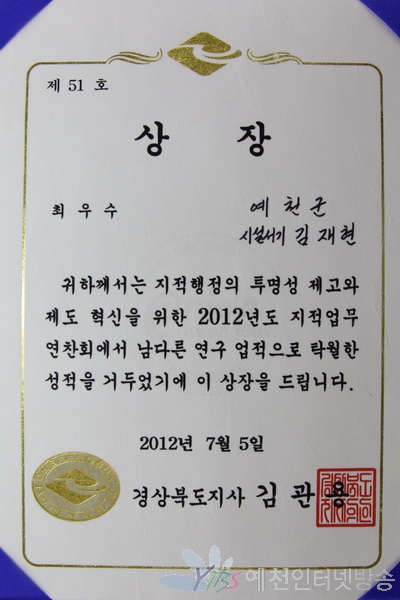 제 51 호
상 장
최 우 수
예 천 군
시설서기 김 재 현
귀하께서는 지적행정의 투명성 제고와
제도 혁신을 위한 2012년도 지적업무
연찬회에서 남다른 연구 업적으로 탁월한
성적을 거두었기에 이 상장을 드립니다.
2012년 7월 5일
경상북도지사 김 관 용
YIBS 예천인터넷방송